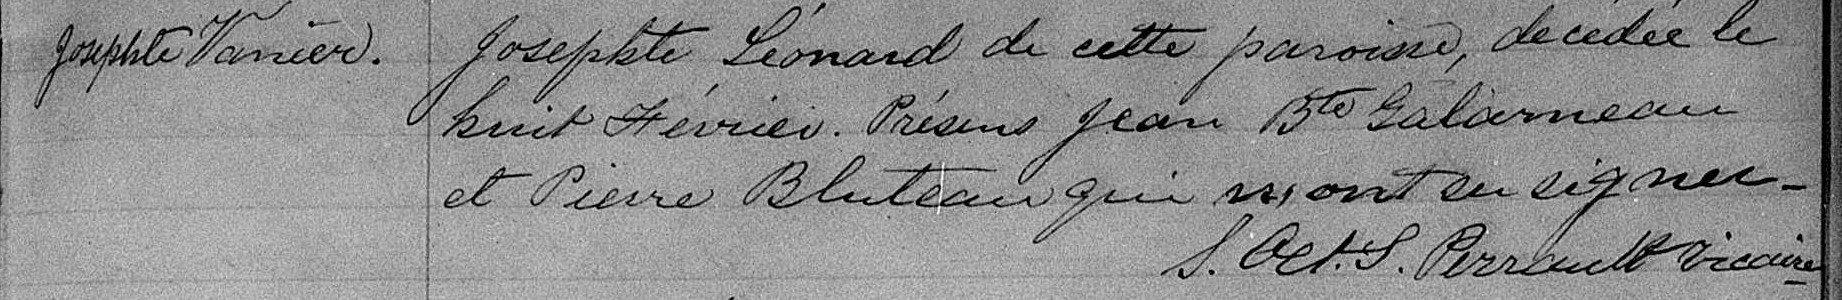 Josephte Vanier. Josephte Léonard de cette paroisse, decédée le
huit Février. Présens Jean Bte Galarneau
et Pierre Bluteau qui n'ont su signer-
S. Oct. S. Perrault Vicaire